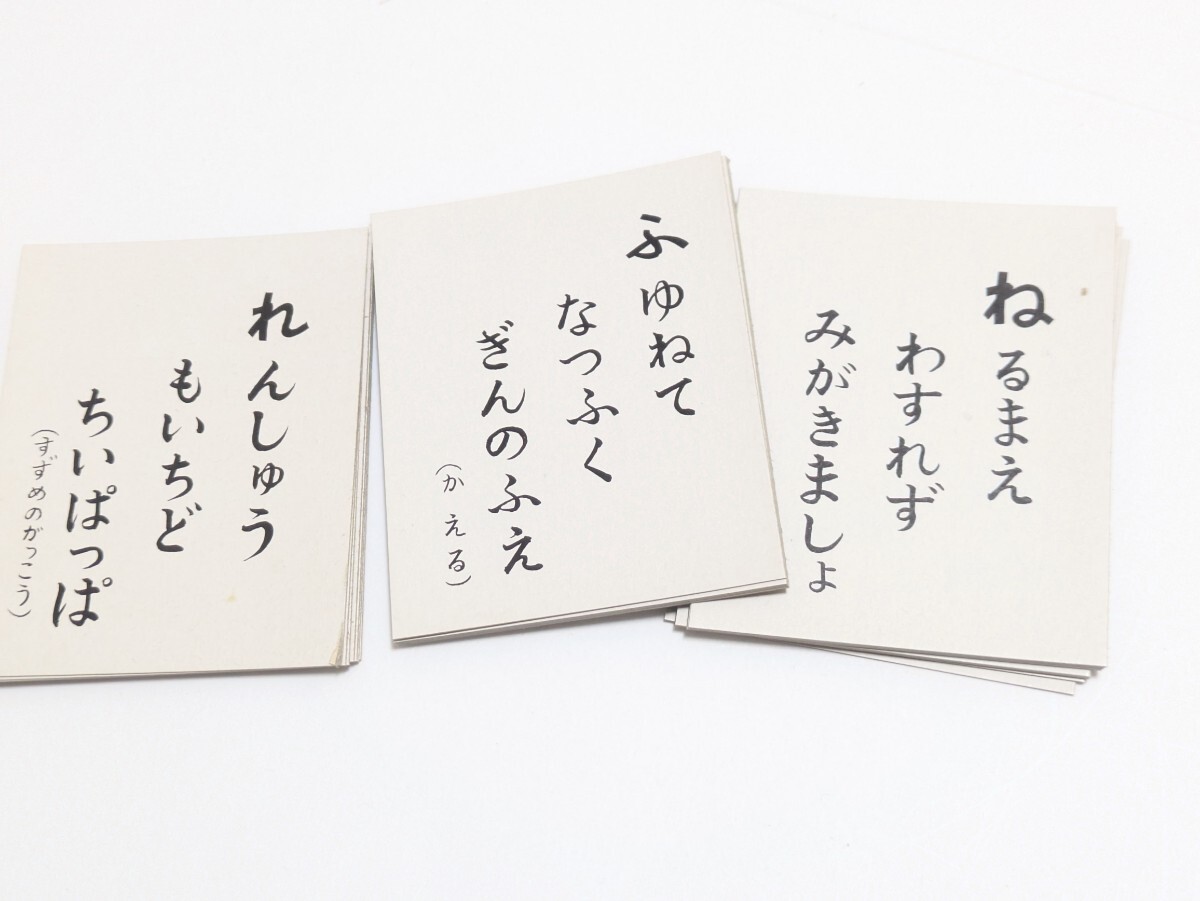 ねるまえ
わすれず
みがきましょ
ふゆねて
なつふく
ぎんのふえ
(かえる)
れんしゅう
もいちど
ちいぱっぱ
(すずめのがっこう)